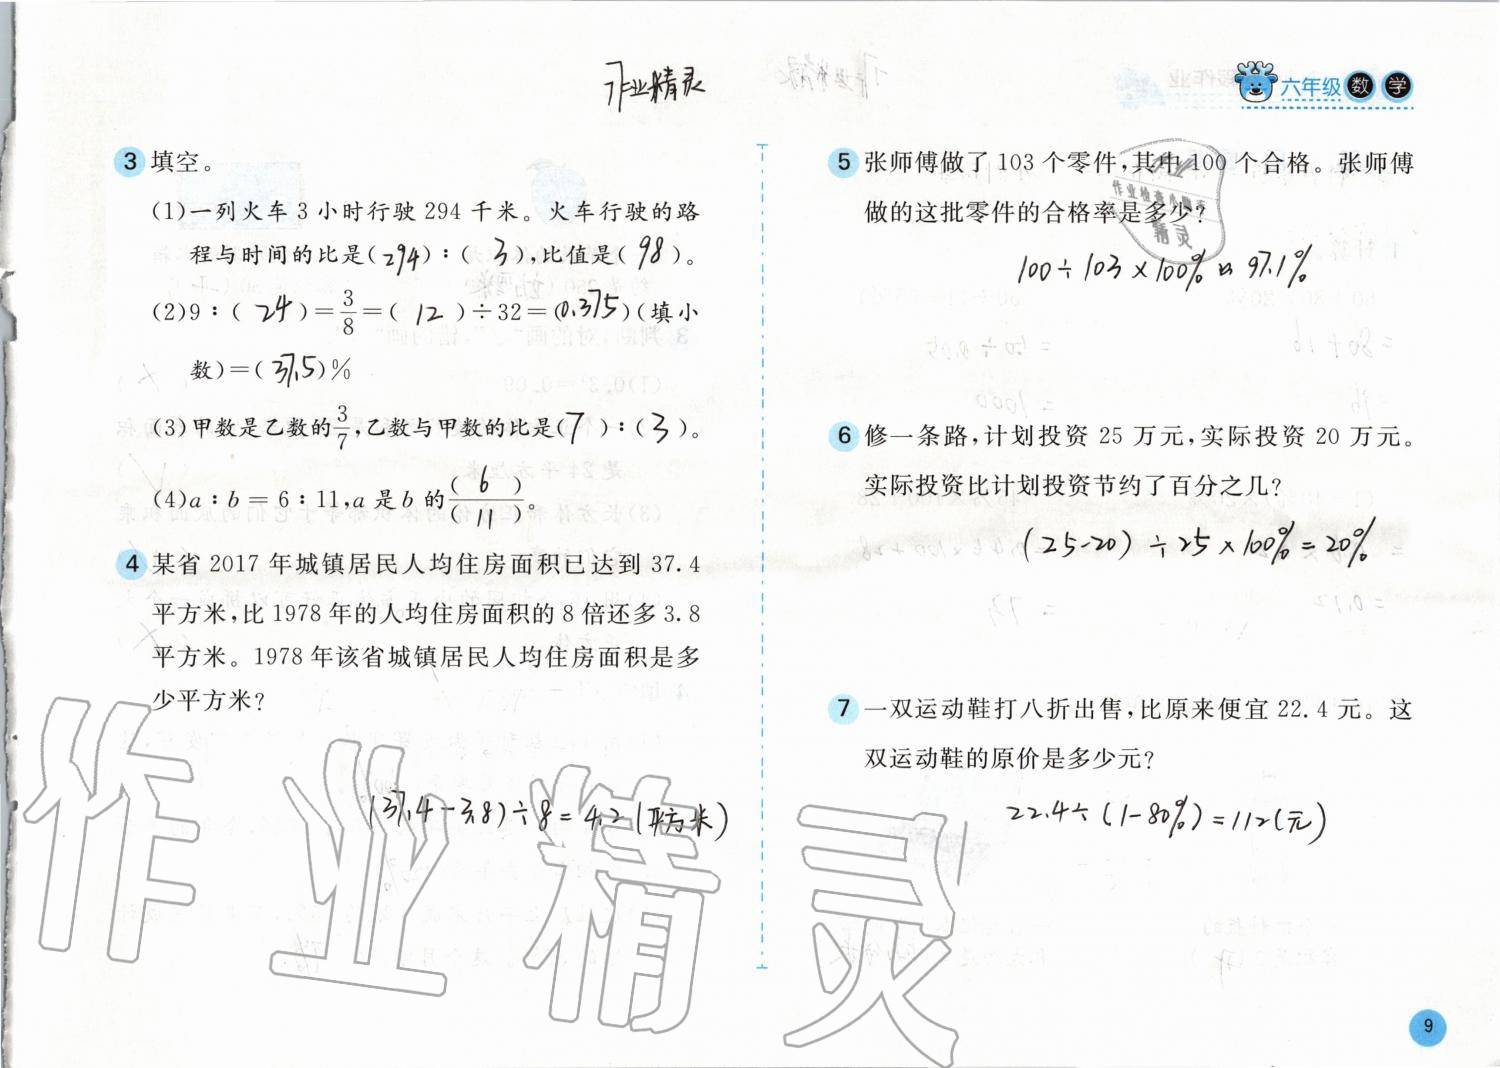 作业精灵
六年级 数 学
3 填空。
(1)一列火车3小时行驶294千米。火车行驶的路
程与时间的比是(294):( 3 ),比值是( 98 )。
(2)9:( 24 )=3/8=( 12 )÷32=(0.375)(填小
数)=(37.5)%
(3)甲数是乙数的3/7,乙数与甲数的比是(7):(3)。
(4)a:b=6:11,a是b的( 6 )/( 11 )。
4 某省2017年城镇居民人均住房面积已达到37.4
平方米,比1978年的人均住房面积的8倍还多3.8
平方米。1978年该省城镇居民人均住房面积是多
少平方米?
(37.4-3.8)÷8=4.2(平方米)
5 张师傅做了103个零件,其中100个合格。张师傅
做的这批零件的合格率是多少?
100÷103×100%≈97.1%
6 修一条路,计划投资25万元,实际投资20万元。
实际投资比计划投资节约了百分之几?
(25-20)÷25×100%=20%
7 一双运动鞋打八折出售,比原来便宜22.4元。这
双运动鞋的原价是多少元?
22.4÷(1-80%)=112(元)
作业精灵
9